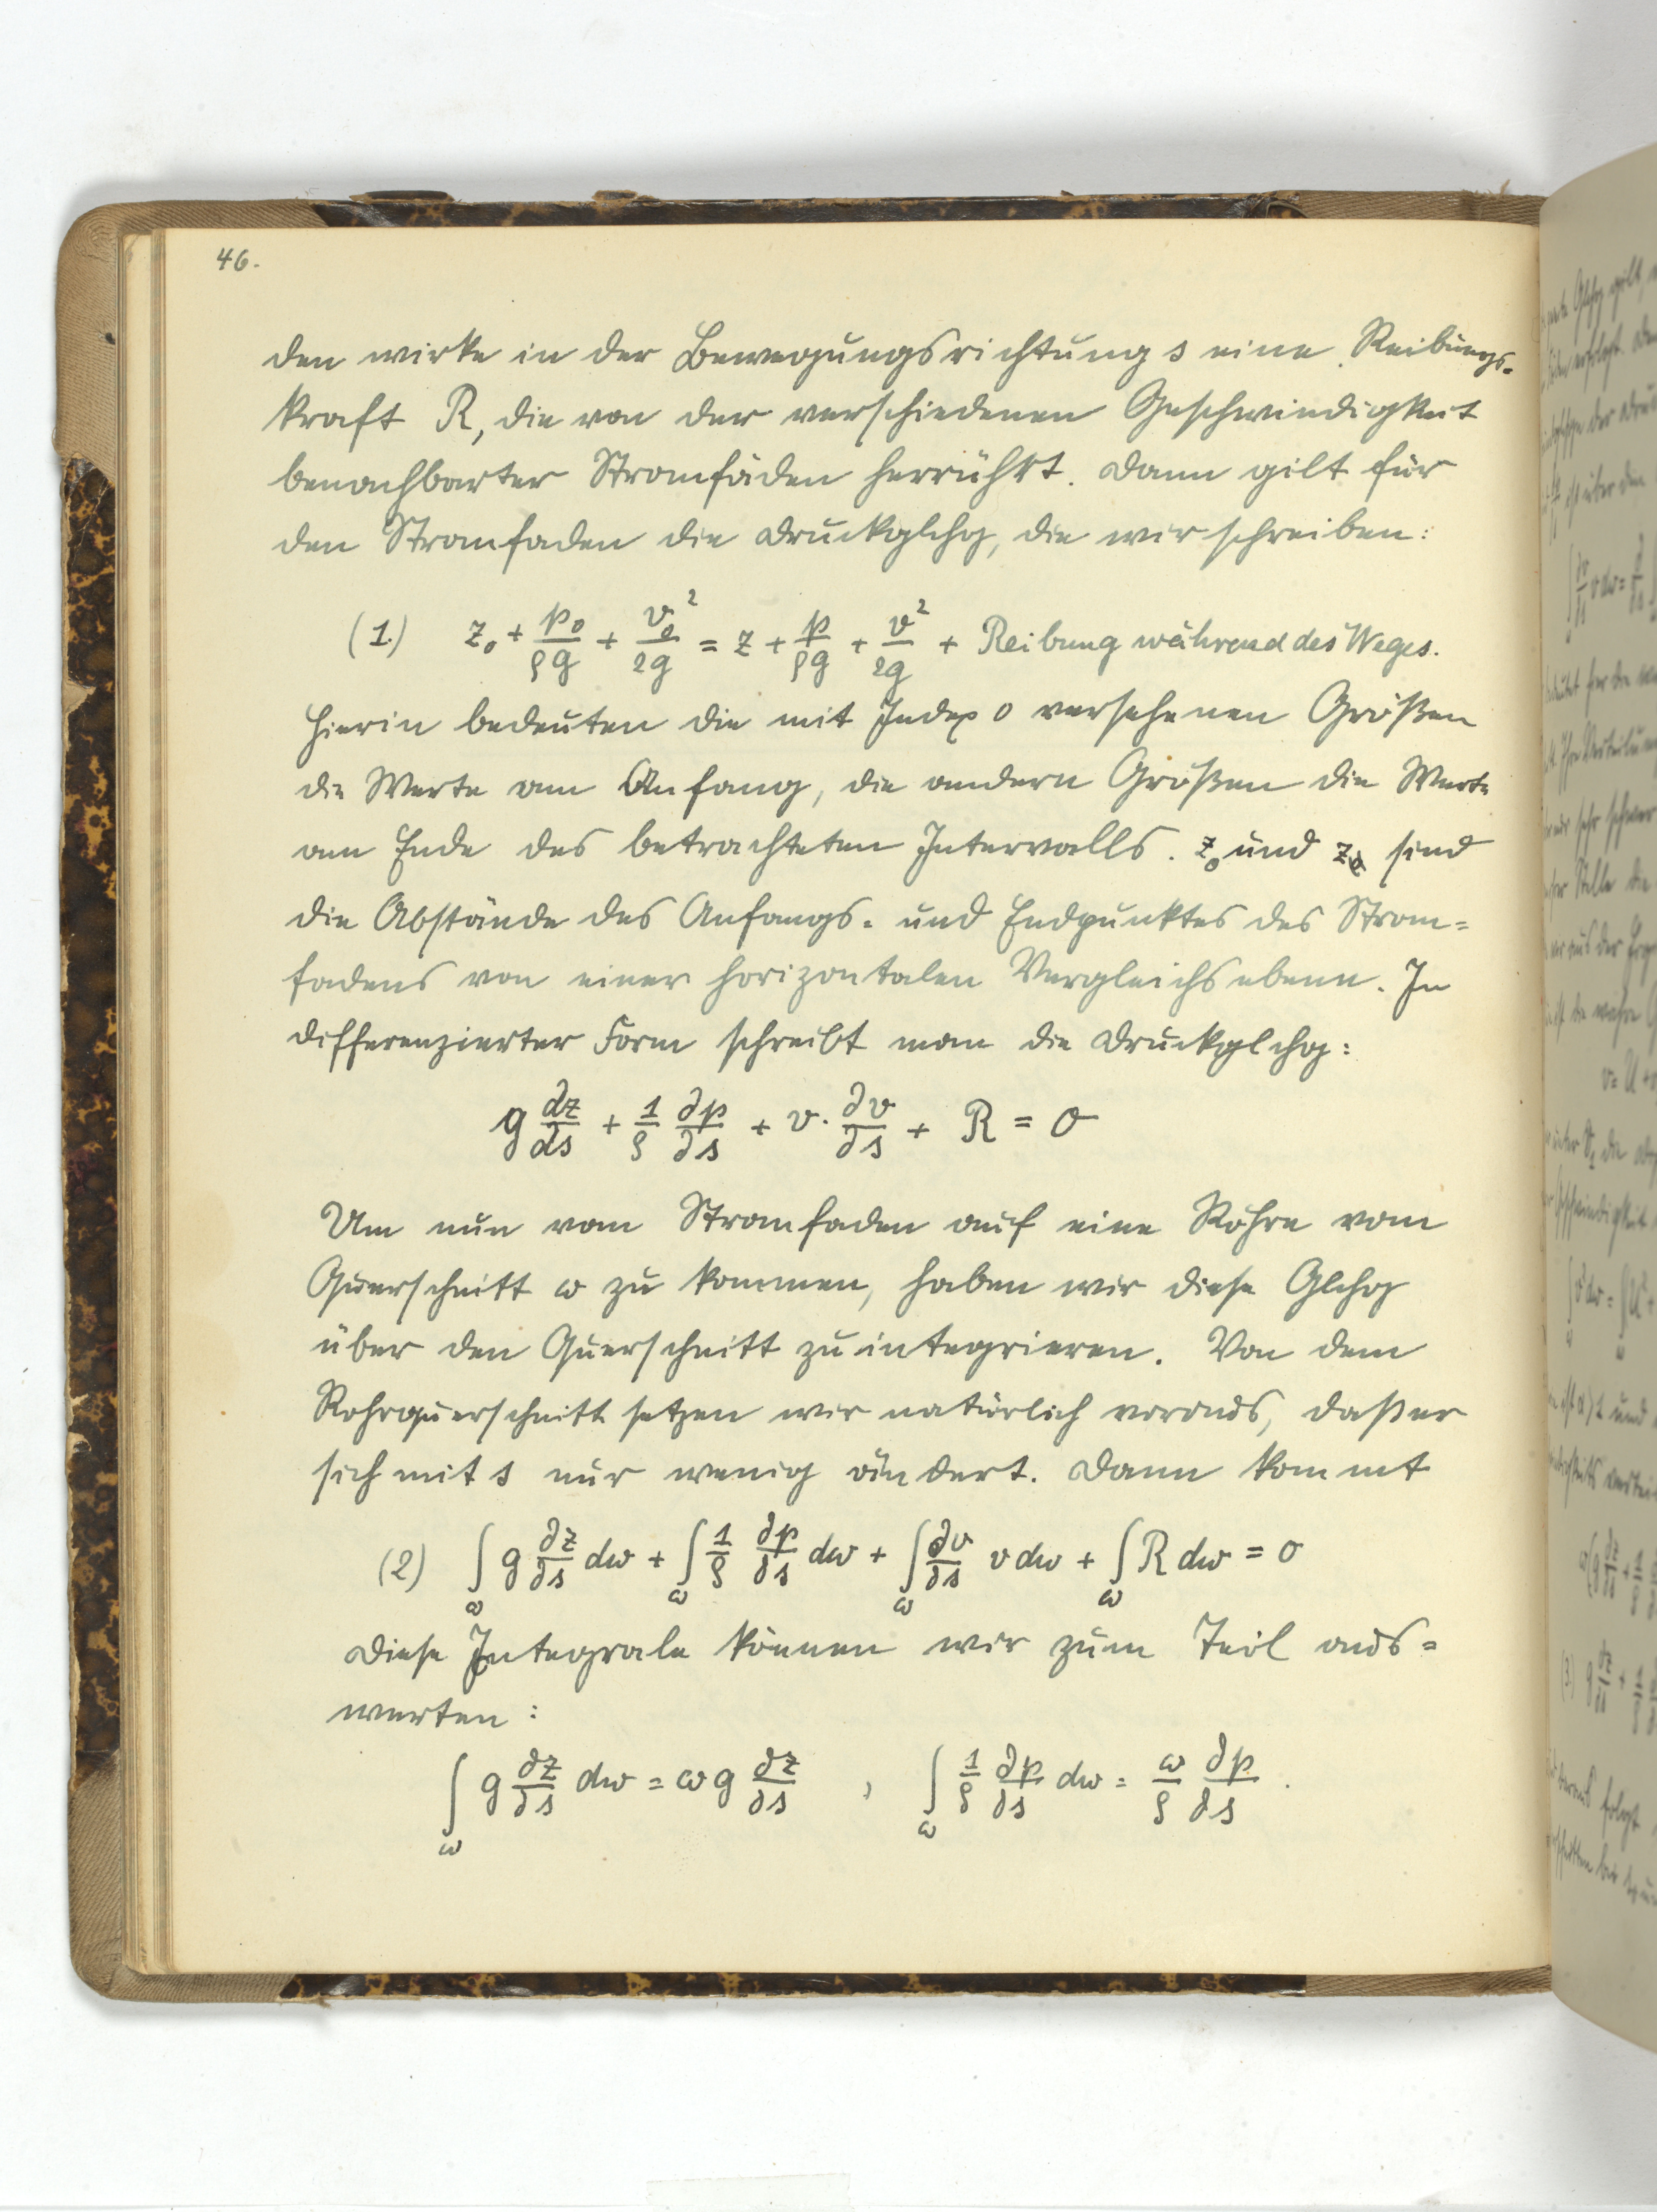 46.
den wirke in der Bewegungsrichtung s eine Reibungs-
kraft R, die von der verschiedenen Geschwindigkeit
benachbarter Stromfäden herrührt. Dann gilt für
den Stromfaden die Druckglchg, die wir schreiben:
(1.) z₀ + p₀/ρg + v₀²/2g = z + p/ρg + v²/2g + Reibung während des Weges.
Hierin bedeuten die mit Index 0 versehenen Größen
die Werte am Anfang, die andern Größen die Werte
am Ende des betrachteten Intervalls. z₀ und z sind
die Abstände des Anfangs- und Endpunktes des Strom=
fadens von einer horizontalen Vergleichsebene. In
differenzierter Form schreibt man die Druckglchg:
g dz/ds + 1/ρ ∂p/∂s + v · ∂v/∂s + R = 0
Um nun vom Stromfaden auf eine Röhre vom
Querschnitt ω zu kommen, haben wir diese Glchg
über den Querschnitt zu integrieren. Von dem
Rohrquerschnitt setzen wir natürlich voraus, daß er
sich mit s nur wenig ändert. Dann kommt
(2) ∫_ω g ∂z/∂s dω + ∫_ω 1/ρ ∂p/∂s dω + ∫_ω ∂v/∂s v dω + ∫_ω R dω = 0
Diese Integrale können wir zum Teil aus=
werten:
∫_ω g ∂z/∂s dω = ω g ∂z/∂s , ∫_ω 1/ρ ∂p/∂s dω = ω/ρ ∂p/∂s .